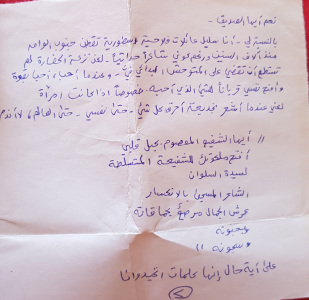 نعم أيها الصديق -
بالنسبة لي - أنا سليل عائلات فلاحية وأسطورية تقطن جنوب الواحة
منذ آلاف السنين ورغم كوني شاعراً حداثياً. لكن نزعة الحضارة لم
تستطع أن تقضي على المتوحش البدائي فيّ - وعندما أحب، أحب بقوة
وأمنح نفسي قرباناً للشيء الذي أحبه. خصوصاً إذا كانت امرأة
لكني عندما أشعر بخديعة أحرق كل شيء - حتى نفسي - حتى العالم، لا أندم
// أيها الشفيع المعصوم. بجبل قلبي
أفتح للشفيعة المتسلطة
لسيدة السلوان
الشاعر المسمى بالانكسار
عرش الجمال مرصعٌ بحماقاته
وجنونه
وسجونه //
على أية حال إنها كلمات